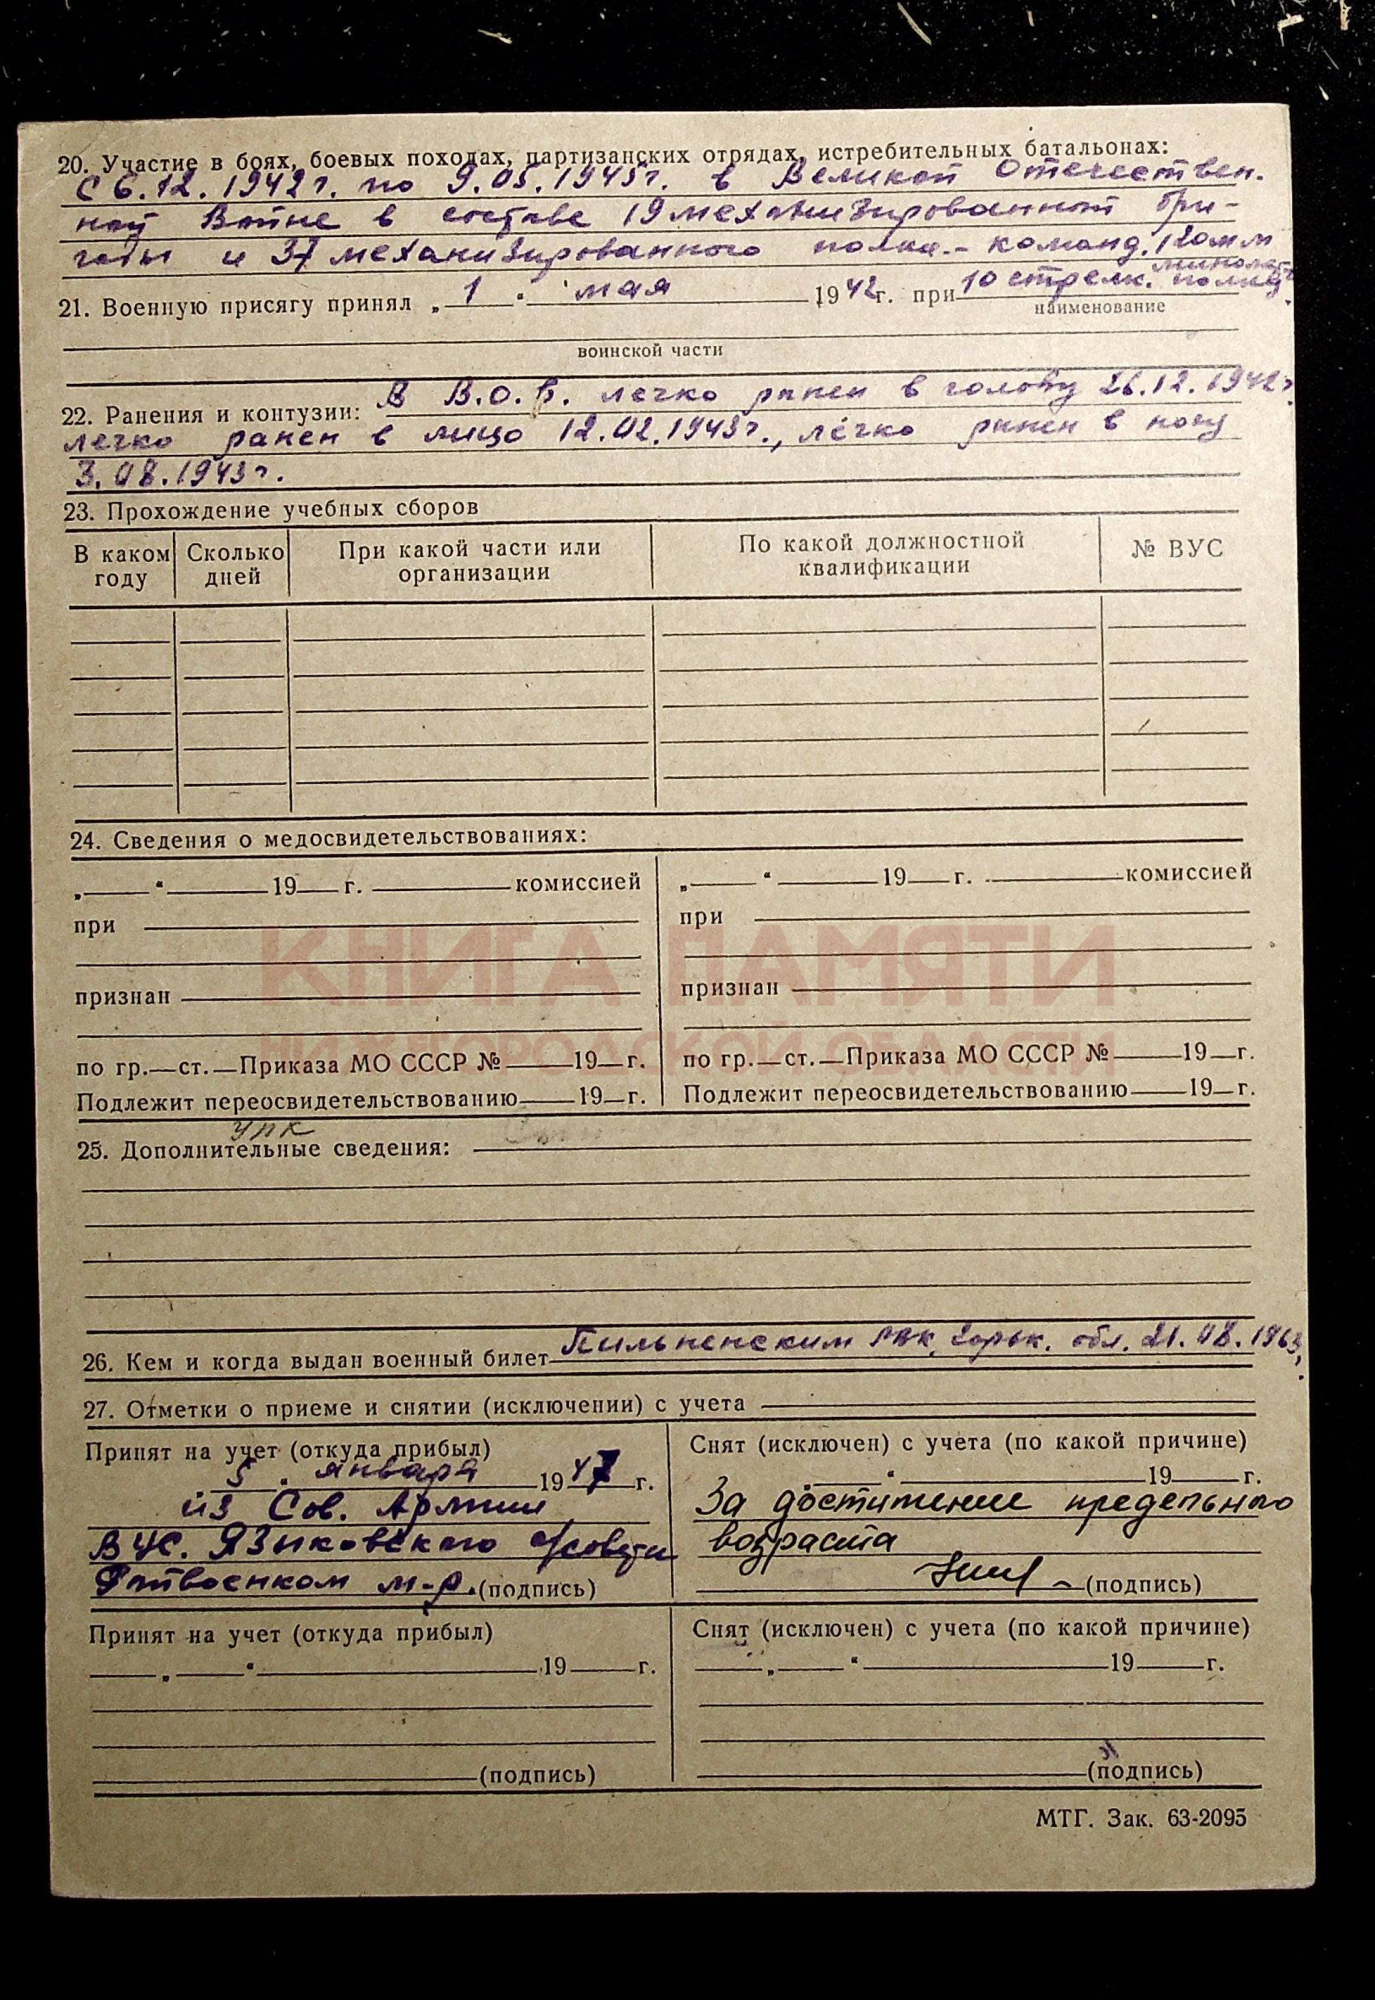 20. Участие в боях, боевых походах, партизанских отрядах, истребительных батальонах:
с 6.12.1942г. по 9.05.1945г. в Великой Отечествен.
ной Войне в составе 19 механизированной бри-
гады и 37 механизированного полка - команд. 120мм
миномета
21. Военную присягу принял „ 1 " мая 1942г. при 10 стрелк. полку
наименование
воинской части
22. Ранения и контузии: В В.О.В. легко ранен в голову 26.12.1942г.
легко ранен в лицо 12.02.1943г., легко ранен в ногу
3.08.1943г.
23. Прохождение учебных сборов
В каком году Сколько дней При какой части или организации По какой должностной квалификации № ВУС
24. Сведения о медосвидетельствованиях:
„ “ 19 г. комиссией „ “ 19 г. комиссией
при при
КНИГА ПАМЯТИ
признан признан
НИЖЕГОРОДСКОЙ ОБЛАСТИ
по гр. ст. Приказа МО СССР № 19 г. по гр. ст. Приказа МО СССР № 19 г.
Подлежит переосвидетельствованию 19 г. Подлежит переосвидетельствованию 19 г.
УПК
25. Дополнительные сведения:
26. Кем и когда выдан военный билет Пильненским РВК, Горьк. обл. 21.08.1963.
27. Отметки о приеме и снятии (исключении) с учета
Принят на учет (откуда прибыл) Снят (исключен) с учета (по какой причине)
5 " января 1947 г. “ 19 г.
из Сов. Армии За достижение предельного
ВУС. Языковского с/совета возраста
м-р. (подпись) (подпись)
Принят на учет (откуда прибыл) Снят (исключен) с учета (по какой причине)
„ “ 19 г. „ “ 19 г.
(подпись) (подпись)
МТГ. Зак. 63-2095